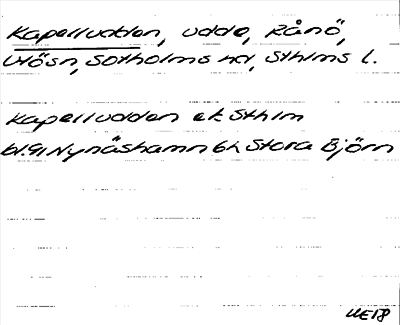 Kapelludden, udde, Rånö,
Utösn, Sotholms hd, Sthlms l.
Kapelludden ek Sthlm
bl. 91 Nynäshamn 6h Stora Björn